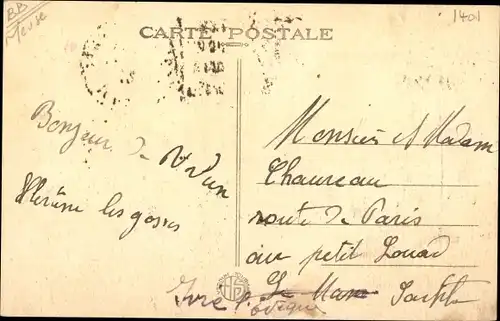 BB
Meuse
1401
CARTE POSTALE
Bonjour de Verdun
les gosses
Monsieur et Madam
Chaureau
route de Paris
au petit Louad
Le Mans Sarthe
Yvré l'Evêque